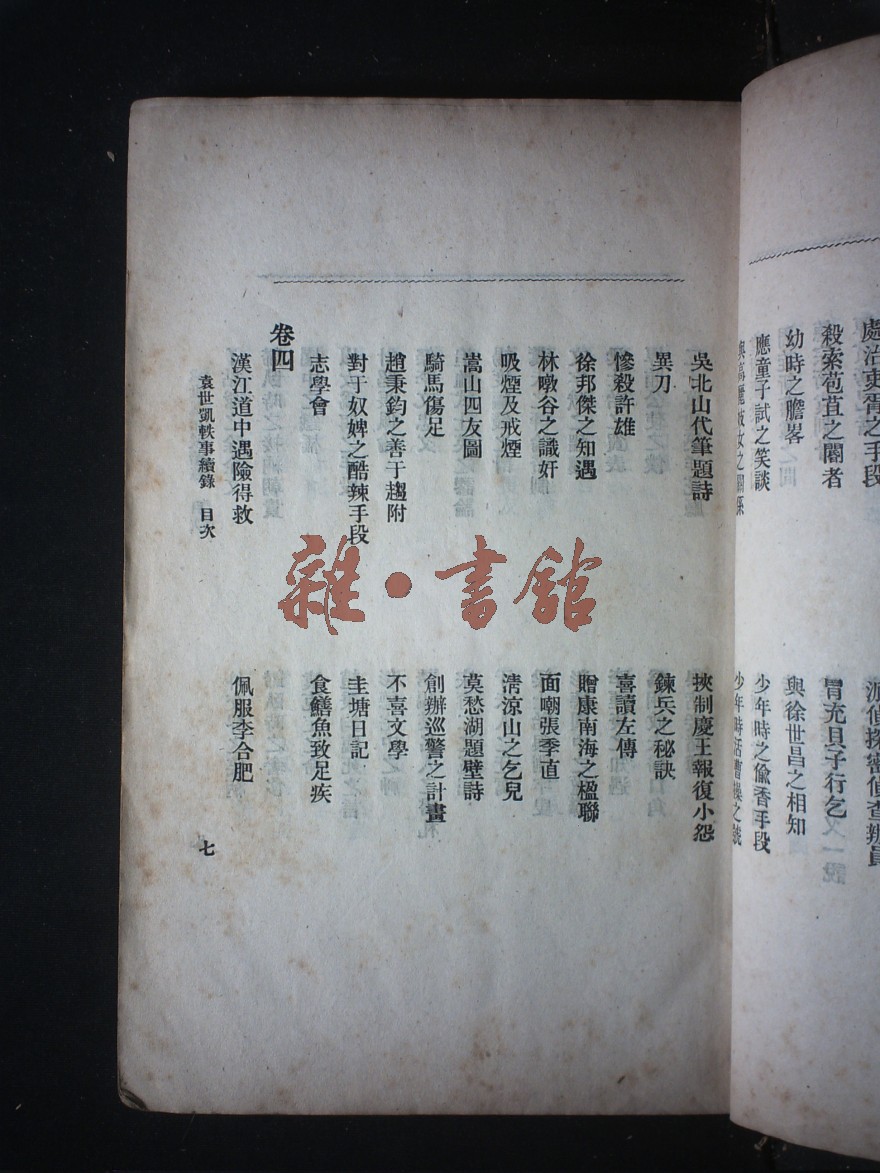 處治吏胥之手段
殺索苞苴之閽者
幼時之膽畧
應童子試之笑談
與高麗妓女之關係
派偵探密偵查辦員
冒充貝子行乞
與徐世昌之相知
少年時之偷香手段
少年時活曹操之號
吳北山代筆題詩
異刀
慘殺許雄
徐邦傑之知遇
林暾谷之識奸
吸煙及戒煙
嵩山四友圖
騎馬傷足
趙秉鈞之善于趨附
對于奴婢之酷辣手段
志學會
挾制慶王報復小怨
鍊兵之秘訣
喜讀左傳
贈康南海之楹聯
面嘲張季直
清涼山之乞兒
莫愁湖題壁詩
創辦巡警之計畫
不喜文學
圭塘日記
食鱔魚致足疾
卷四
漢江道中遇險得救
佩服李合肥
袁世凱軼事續錄 目次
七
雜·書館